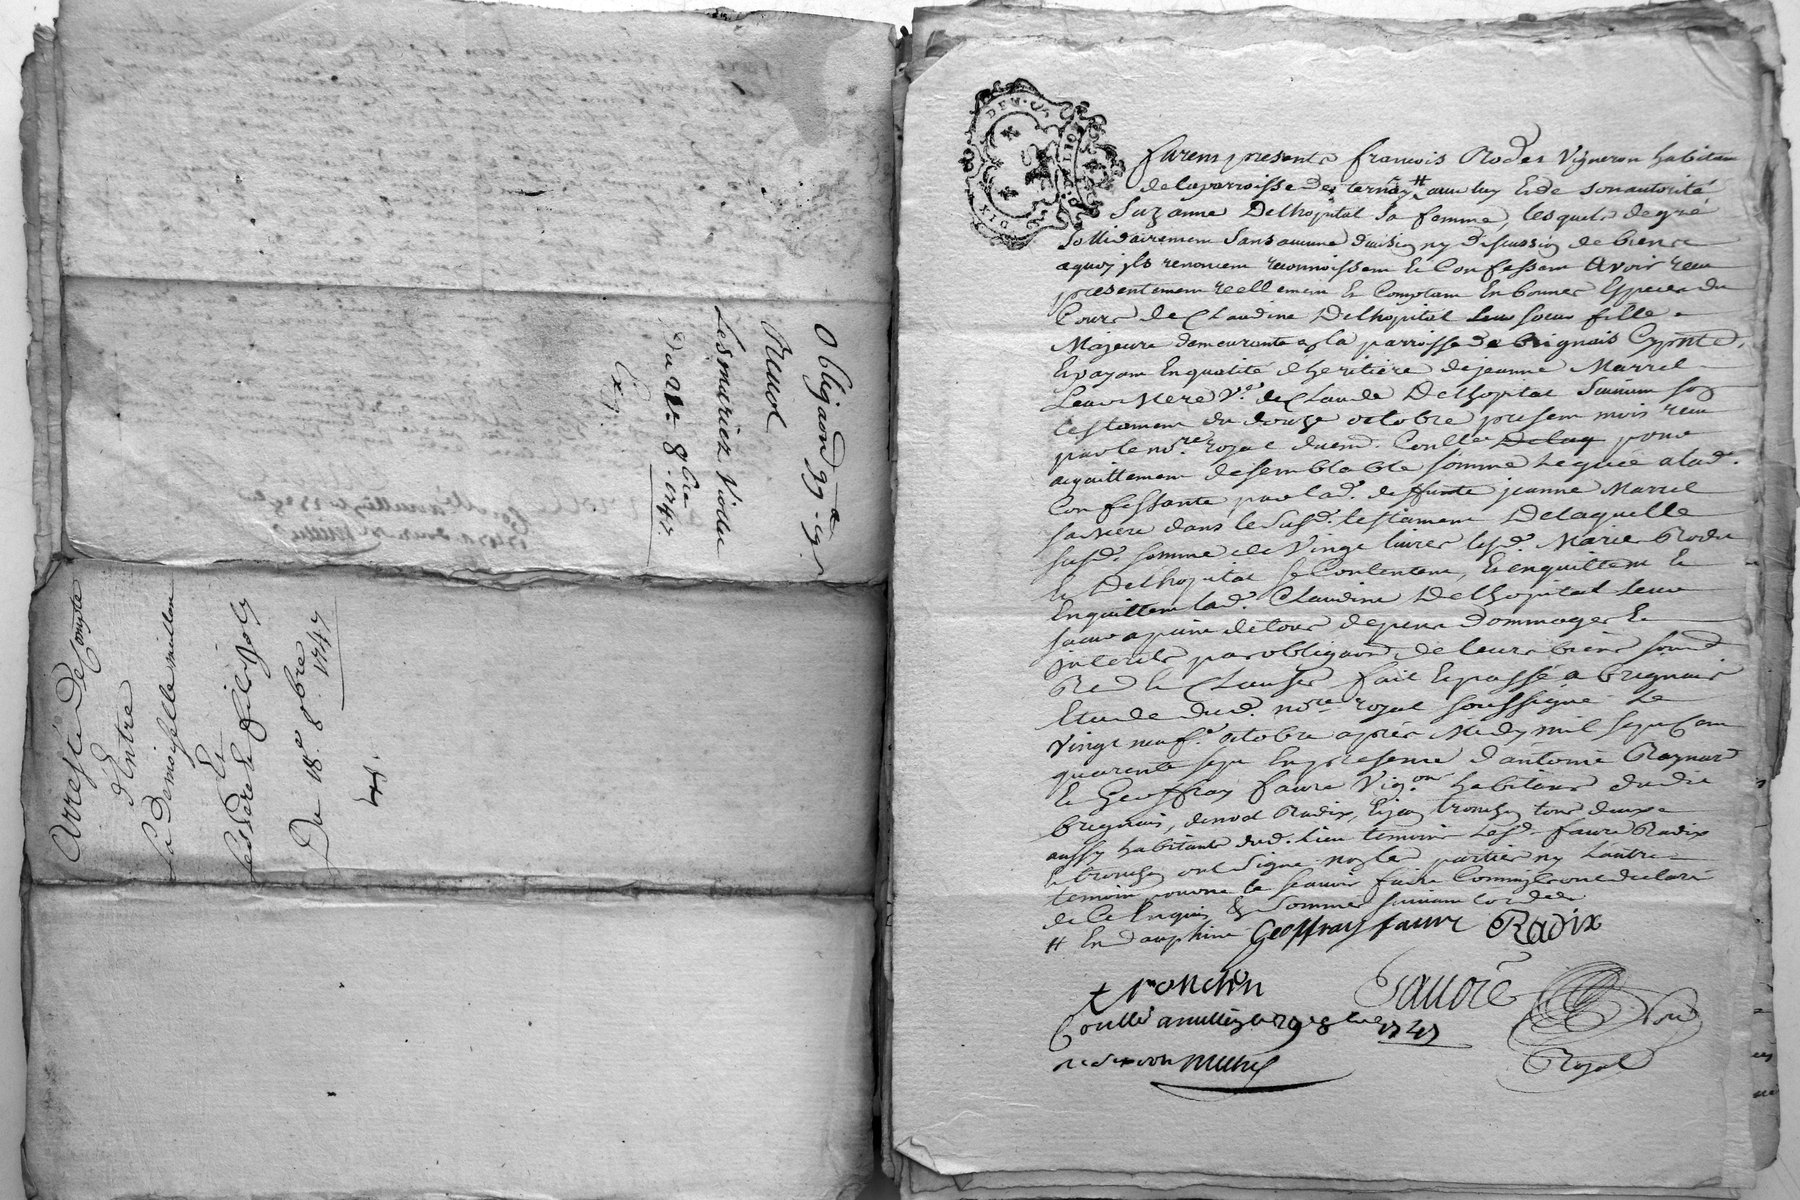 Obligaon 99
Revol
Les mariez Violle
Du 8bre 1747
Arresté De Compte
d'Entre
La Demoiselle millon
Et
Du 18e 8bre 1747
furent presents francois Rodes Vigneron habitant
de la parroisse de ternay # avec luy Et de son autorité
Suzanne Delhopital sa femme, lesquels de gré
sollidairement sans aucune division ny discussion de biens
a quoy ils renoncent reconnoissent Et Confessent Avoir receu
presentement reellement Et Comptant En bonnes Especes du
Cours de Claudine Delhopital Leur soeur fille
Majeure demeurante a la parroisse de brignais Cy pnte,
Et payant En qualité d'heritiere de jeanne Marrel
Leur Mere Ve. de Claude Delhopital Suivant son
testament du douze octobre present mois receu
par le nore. royal Coulle pour
acquittement de semblable somme leguée a lad.
Confessante par lad. deffunte jeanne Marrel
sa Mere dans le Susd. testament De laquelle
susd. somme de Vingt livres lesd. Mariez Rodes
Et Delhopital se Contentent, Et en quittent Et
En quittent lad. Claudine Delhopital leur
soeur a peine de tous depens dommages Et
interets par obligaon de leurs biens
Et Clauses fait Et passé a brignais
Etude dud. nore royal soussigné Le
Vingt neuf octobre apres Midy mil sept Cent
quarante sept En presence d'antoine Raynard
Et Geoffray faure Vigons habitans dudit
brignais, benoit Radix, Et tronchin tous deux
aussy habitants dud. Lieu temoins Lesd. faure Radix
Et tronchin ont Signé non les parties ny L'autre
temoin pour ne le scavoir faire Comme ils ont declaré
de Ce Enquis & Sommés suivant L'ordce
# En dauphine Geoffray faure Radix
tronchin
Coulle a le 29e 8bre 1747
Royal